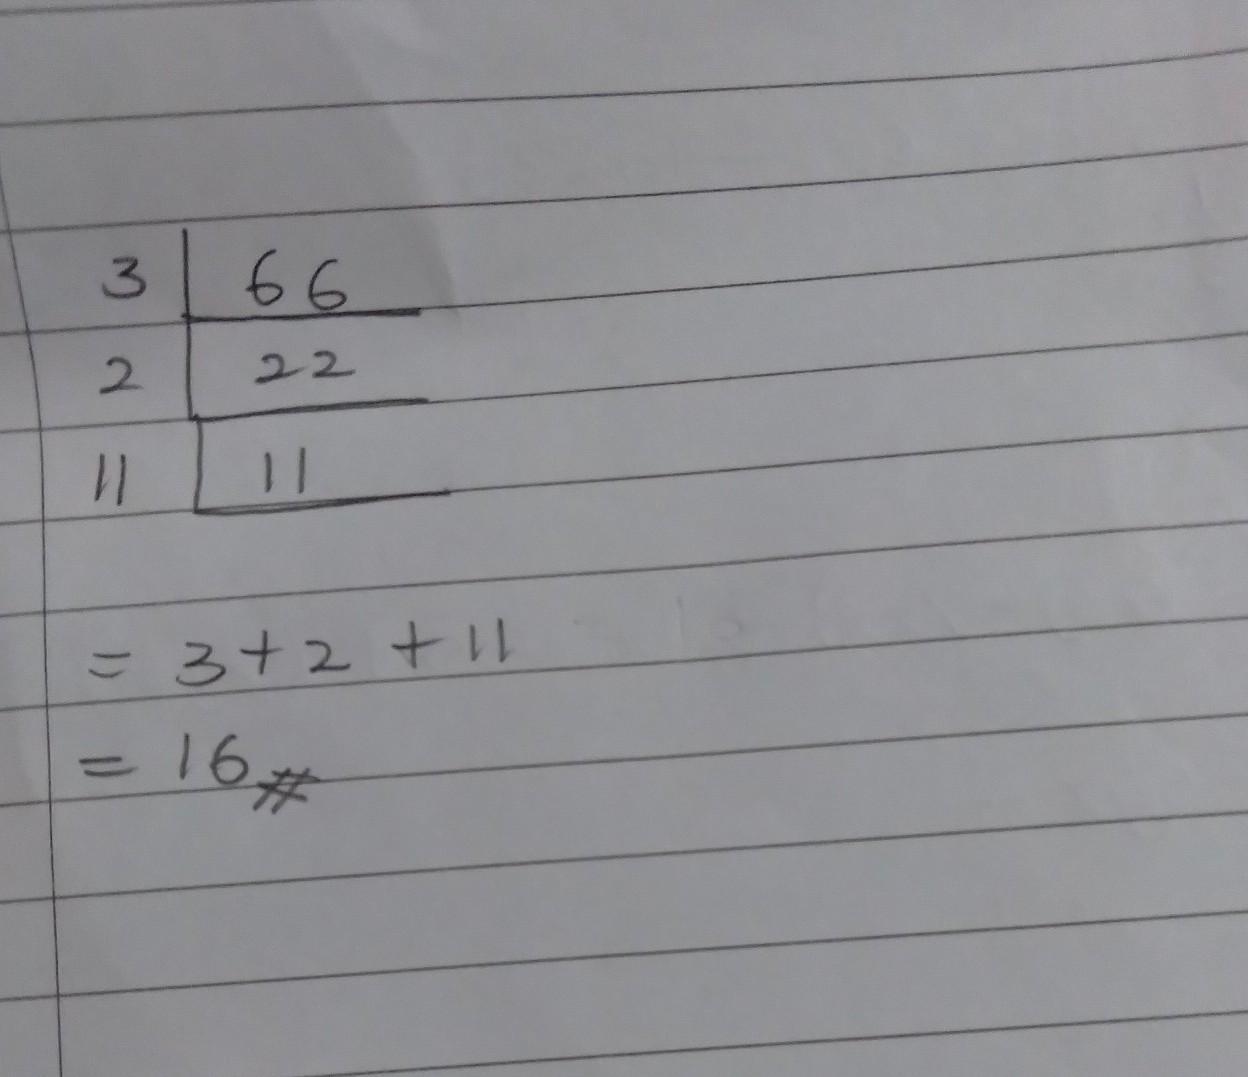 3 | 66
2 | 22
11 | 11
= 3 + 2 + 11
= 16 #